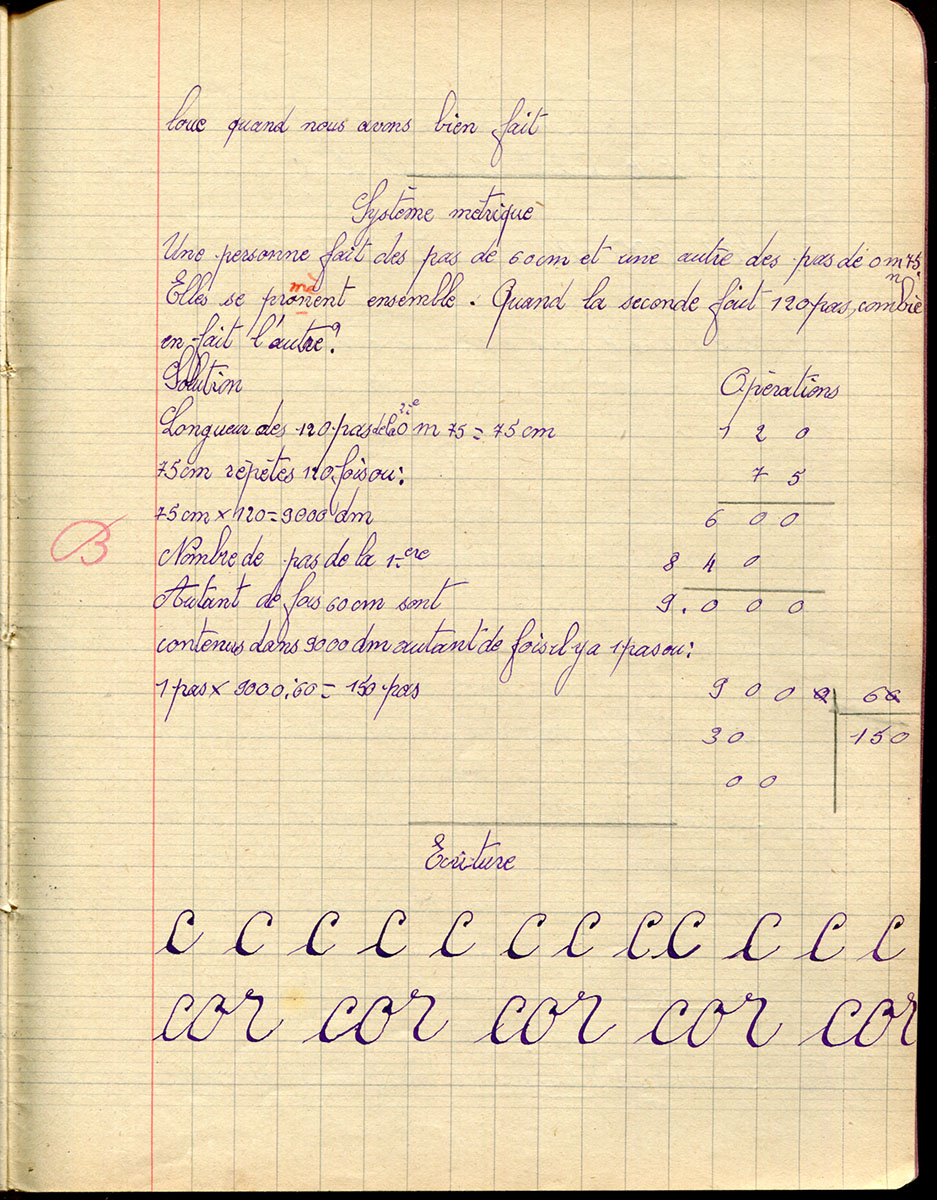 loue quand nous avons bien fait
Système métrique
Une personne fait des pas de 60cm et une autre des pas de 0m75.
Elles se promènent ensemble. Quand la seconde fait 120 pas, combien
en fait l'autre?
Solution
Opérations
Longueur des 120 pas de la 2ie 0 m 75 = 75 cm
1 2 0
75cm répétés 120 fois ou:
7 5
75cm × 120 = 9000 dm
6 0 0
B
Nombre de pas de la 1ère
8 4 0
Autant de fois 60cm sont
9.0 0 0
contenus dans 9000 dm autant de fois il y a 1 pas ou:
1 pas × 9000:60 = 150 pas
9 0 0 0 60
3 0 150
0 0
Ecriture
c c c c c c c c c c c c
cor cor cor cor cor